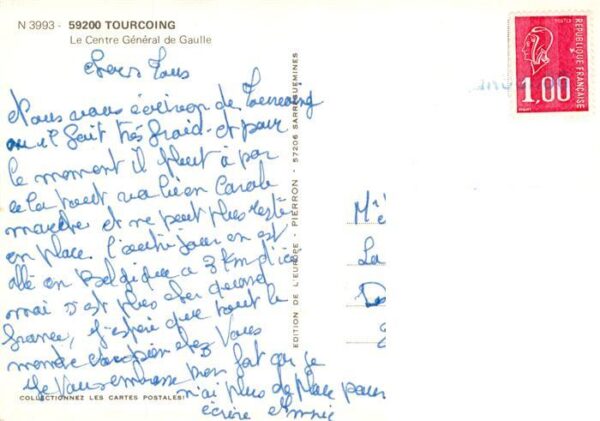 N 3993 - 59200 TOURCOING
Le Centre Général de Gaulle
Chers Tous
Nous vous écrivon de Tourcoing
ou il fait très froid - et pour
le moment il pleut à par
de la tout va bien Carole
marche et ne peut plus resté
en place. l'autre jour on est
allé en Belgique a 3 km d'ici
mai s'est plus cher quand
france, j'espère que tout le
monde vas bien chez Vous
je Vous embrasse bien fort car je
n'ai plus de place pour
écrire
COLLECTIONNEZ LES CARTES POSTALES
EDITION DE L'EUROPE - PIERRON - 57206 SARREGUEMINES
POSTES
REPUBLIQUE FRANÇAISE
1,00
La